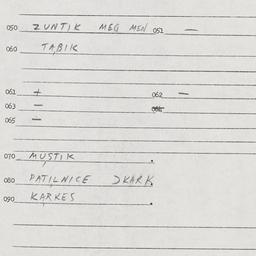 050 ZUNTIK MEG MEN 051 —
060 TABIK
061 + 062 —
063 — 064
065 —
070 MUSTIK
080 PATILNICE
090 KARKES